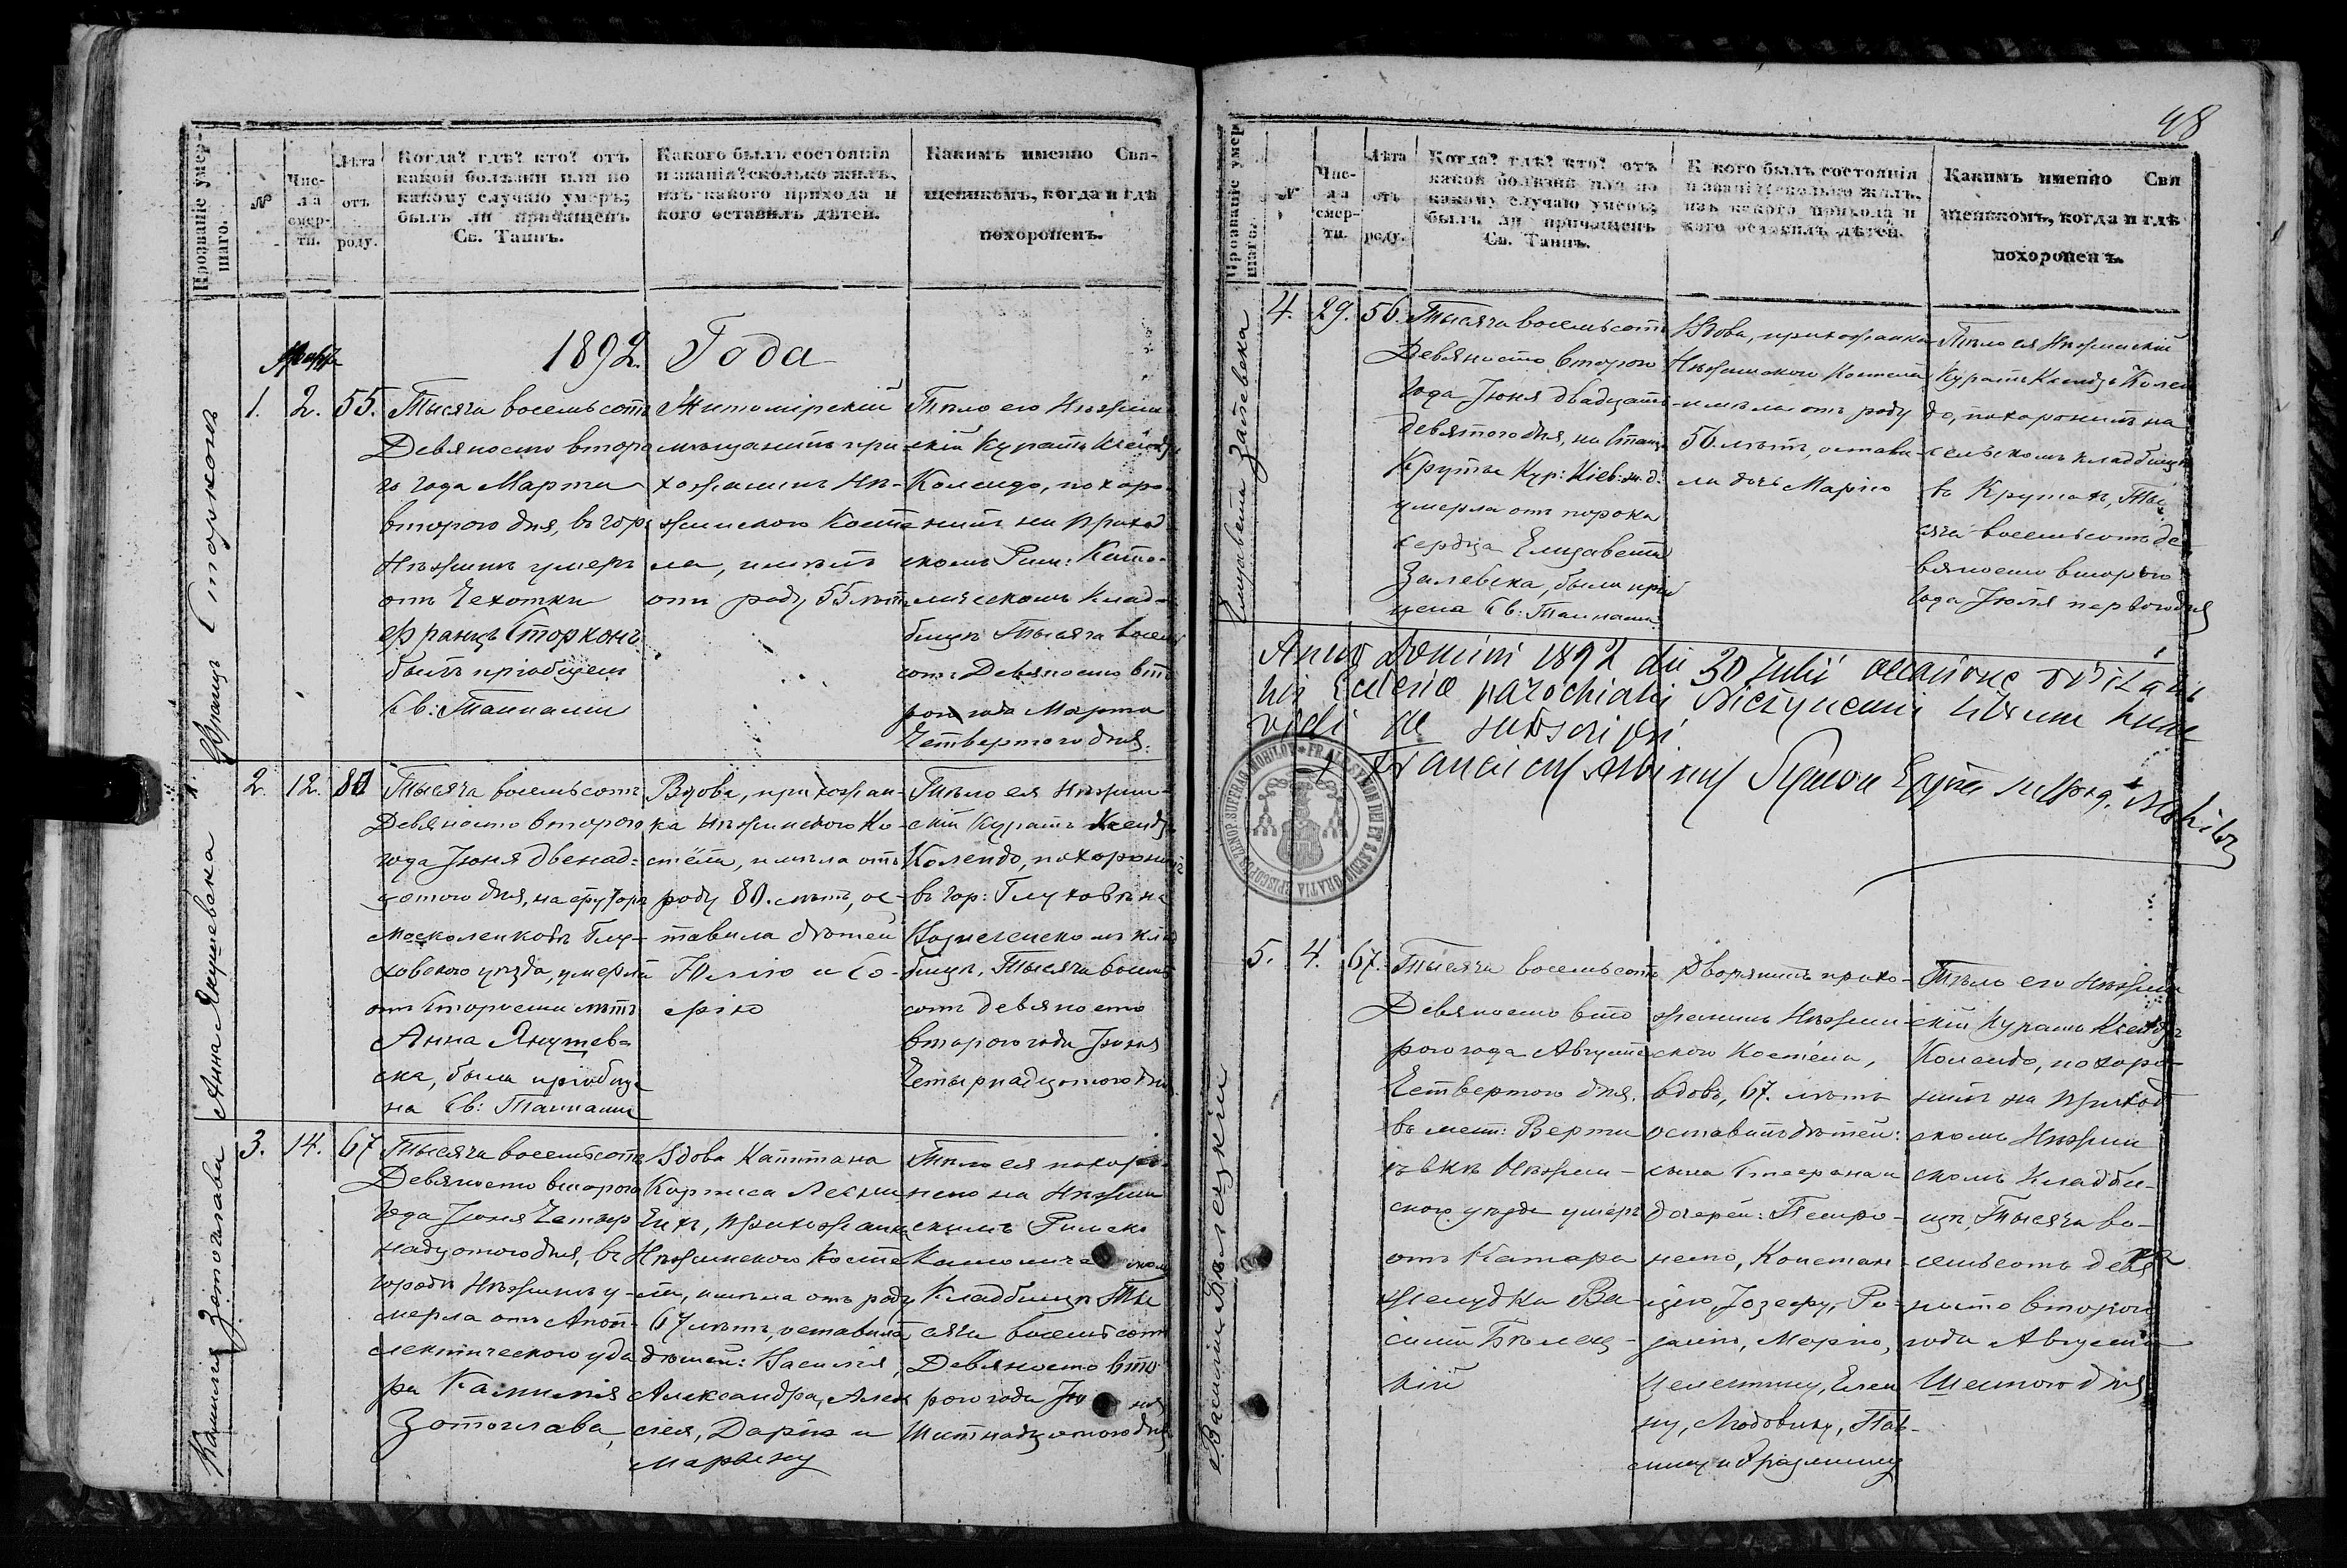 48
Прозваніе умер-
шаго.
№
Чис-
ла
смер-
ти.
Лѣта
отъ
роду.
Когда? гдѣ? кто? отъ
какой болѣзни или по
какому случаю умеръ;
былъ ли причащенъ
Св. Таинъ.
Какого былъ состоянія
и званія? сколько жилъ,
изъ какого прихода и
кого оставилъ дѣтей.
Какимъ именно Свя-
щеникомъ, когда и гдѣ
похороненъ.
1892. Года
Францъ Сторконъ
1.
2.
55.
Тысяча восемьсотъ
Девяносто второ
го года Марта
второго дня, въ гор:
Нѣжинѣ умеръ
отъ Чехотки
Францъ Сторконъ
былъ пріобщен
Св: Тайнами
Житомірскій
мѣщанинъ при-
хожанинъ Нѣ-
жинского Косте
ла, имѣлъ
отъ роду 55 лѣтъ
Тѣло его Нѣжин-
скій Куратъ Ксендзъ
Колендо, похоро-
нилъ на приход
скомъ Рим: Като-
лическомъ Клад-
бищѣ Тысяча восемь
сотъ Девяносто вто
рого года Марта
Четвертого дня.
Анна Янушевска
2.
12.
80
Тысяча восемьсотъ
Девяносто второго
года Іюня двенад-
цатого дня, на хуторѣ
Москаленковѣ Глу-
ховского уѣзда, умерла
отъ Старости лѣтъ
Анна Янушев-
ска, была пріобще
на Св: Тайнами
Вдова, прихожан-
ка Нѣжинского Ко-
стёла, имѣла отъ
роду 80. лѣтъ, ос-
тавила дѣтей
Юлію и Со-
фію
Тѣло ея Нѣжин-
скій Куратъ Ксендзъ
Колендо, похоронилъ
въ гор: Глуховѣ на
Вознесенскомъ клад
бищѣ, Тысяча восемь
сотъ девяносто
второго года Іюня
Четырнадцатого дня
Камилія Затоглава
3.
14.
67
Тысяча восемьсотъ
Девяносто второго
года Іюня Четыр
надцатого дня, въ
городѣ Нѣжинѣ у-
мерла отъ Апоп-
лектического уда
ра Камилія
Затоглава,
Вдова Капитана
Нѣжинского Косте
ла, имѣла отъ роду
67 лѣтъ, оставила
дѣтей: Василія,
Александра, Алек
сѣя, Дарію и
Марьяну
Тѣло ея похоро-
нено на Нѣжин
скимъ Римско
Католическомъ
Кладбищѣ Ты
сяча восемьсотъ
Девяносто вто
рого года Іюня
Шестнадцатого дня
Елизавета Залевска
4.
29.
56.
Тысяча восемьсотъ
Девяносто второго
года Іюня двадцать
девятого дня, на Стан:
Круты Кур: Кіев: ж. д.
умерла отъ порока
сердца Елизавета
Залевска, была пріоб
щена Св: Тайнами
Вдова, прихожанка
Нѣжинского Костела
имѣла отъ роду
56. лѣтъ, остави-
ла дочь Марію
Тѣло ея Нѣжинскій
Куратъ Ксендзъ Колен
до, похоронилъ на
сельскомъ кладбищѣ
въ Крутахъ, Ты
сяча восемьсотъ де
вяносто второго
года Іюля первого дня
Anno Domini 1892 die 30 Julii occasione
Ecclesiæ parochialis Niezynensis librum hunc
vidi ac subscripsi
Franciscus Albinus Symon
Василій Бѣлецкій
5.
4.
67.
Тысяча восемьсотъ
Девяносто вто
рого года Августа
Четвертого дня,
въ мест: Верти
евкѣ Нѣжин-
ского уѣзда умеръ
отъ Катара
желудка Ва-
силій Бѣлец-
кій
Дворянинъ прихо-
жанинъ Нѣжин
ского Костёла,
вдовъ, 67. лѣтъ
оставилъ дѣтей:
сына Стефана и
дочерей: Петро-
нелю, Констан-
цію, Іозефу, Ро-
залію, Марію,
Целестину, Елен
ну, Людовику, Пав-
лину и
Тѣло его Нѣжин
скій Куратъ Ксендзъ
Колендо, похоро-
нилъ на приход
скомъ Нѣжин
скомъ Кладби-
щѣ, Тысяча во-
семьсотъ девя
носто второго
года Августа
Шестого дня